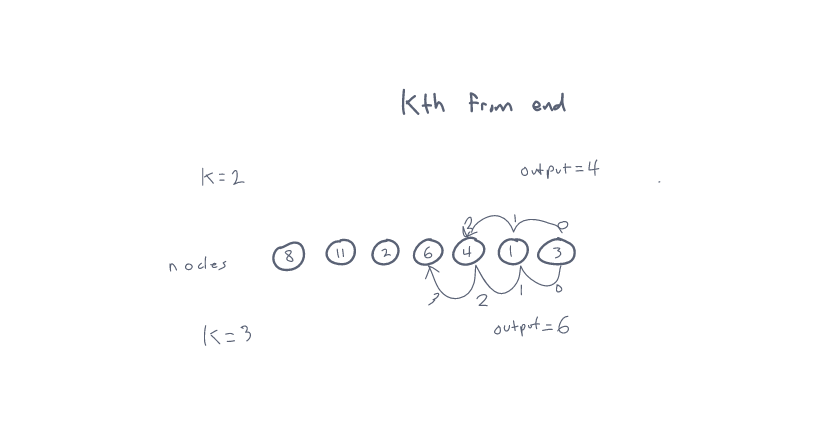 Kth from end
K=2 output=4
2 1 0
nodes 8 11 2 6 4 1 3
3 2 1 0
K=3 output=6